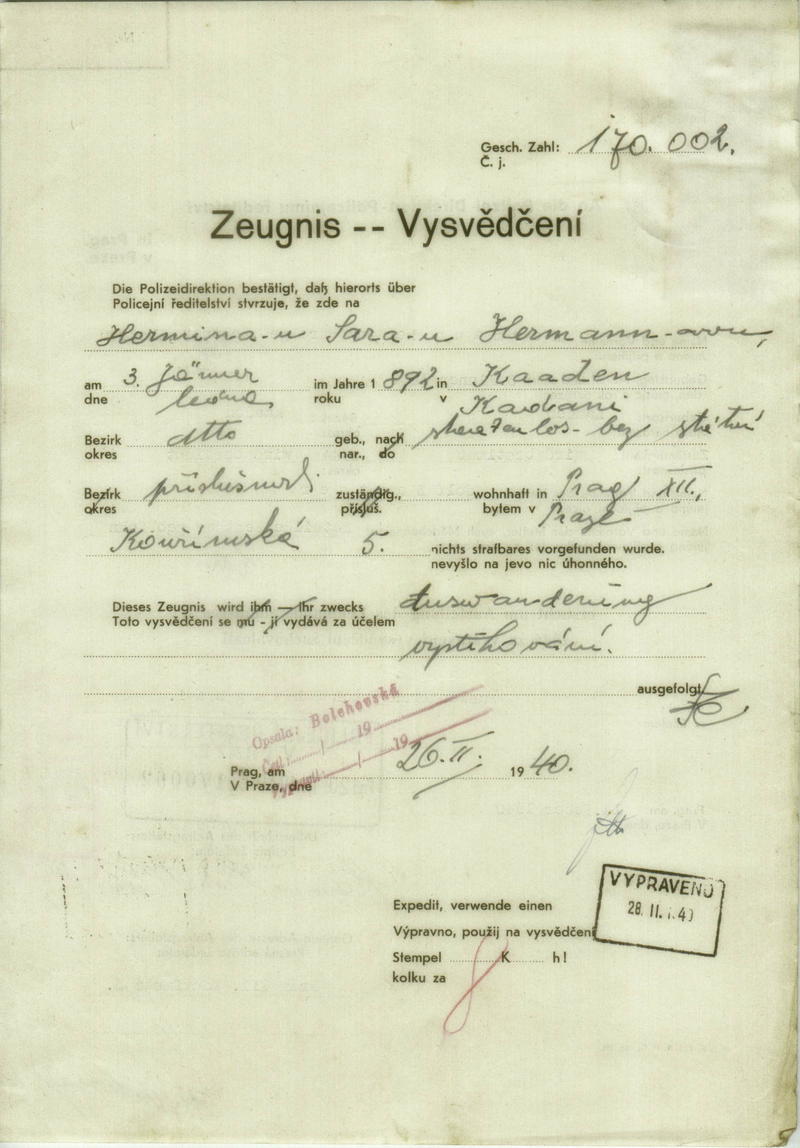 Gesch. Zahl: 170.002.
Č. j.
Zeugnis -- Vysvědčení
Die Polizeidirektion bestätigt, daß hierorts über
Policejní ředitelství stvrzuje, že zde na
Hermina-u Sara-u Hermann-ovou,
am 3. Jänner im Jahre 1 892 in Kaaden
dne ledna roku v Kadani
Bezirk dtto geb., nach staatenlos - bez státní
okres nar., do
Bezirk příslušnosti zuständig., wohnhaft in Prag XII.,
okres přísluš. bytem v Praze
Kouřimská 5. nichts strafbares vorgefunden wurde.
nevyšlo na jevo nic úhonného.
Dieses Zeugnis wird ihm — Ihr zwecks Auswanderung
Toto vysvědčení se mu - jí vydává za účelem
vystěhování.
ausgefolgt
Opsala: Bolehovská
19
19
Prag, am 26. II. 19 40.
V Praze, dne
VYPRAVENO
28. II. 40
Expedit, verwende einen
Výpravno, použij na vysvědčení
Stempel K h!
kolku za